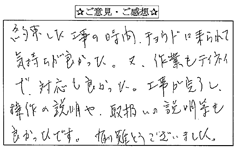 ☆ご意見・ご感想☆
約束した工事の時間、チョウドに来られて
気持ちが良かった。又、作業もテイネイ
で、対応も良かった。工事が完了し、
操作の説明や、取扱いの説明等も
良かったです。有難とうございました。